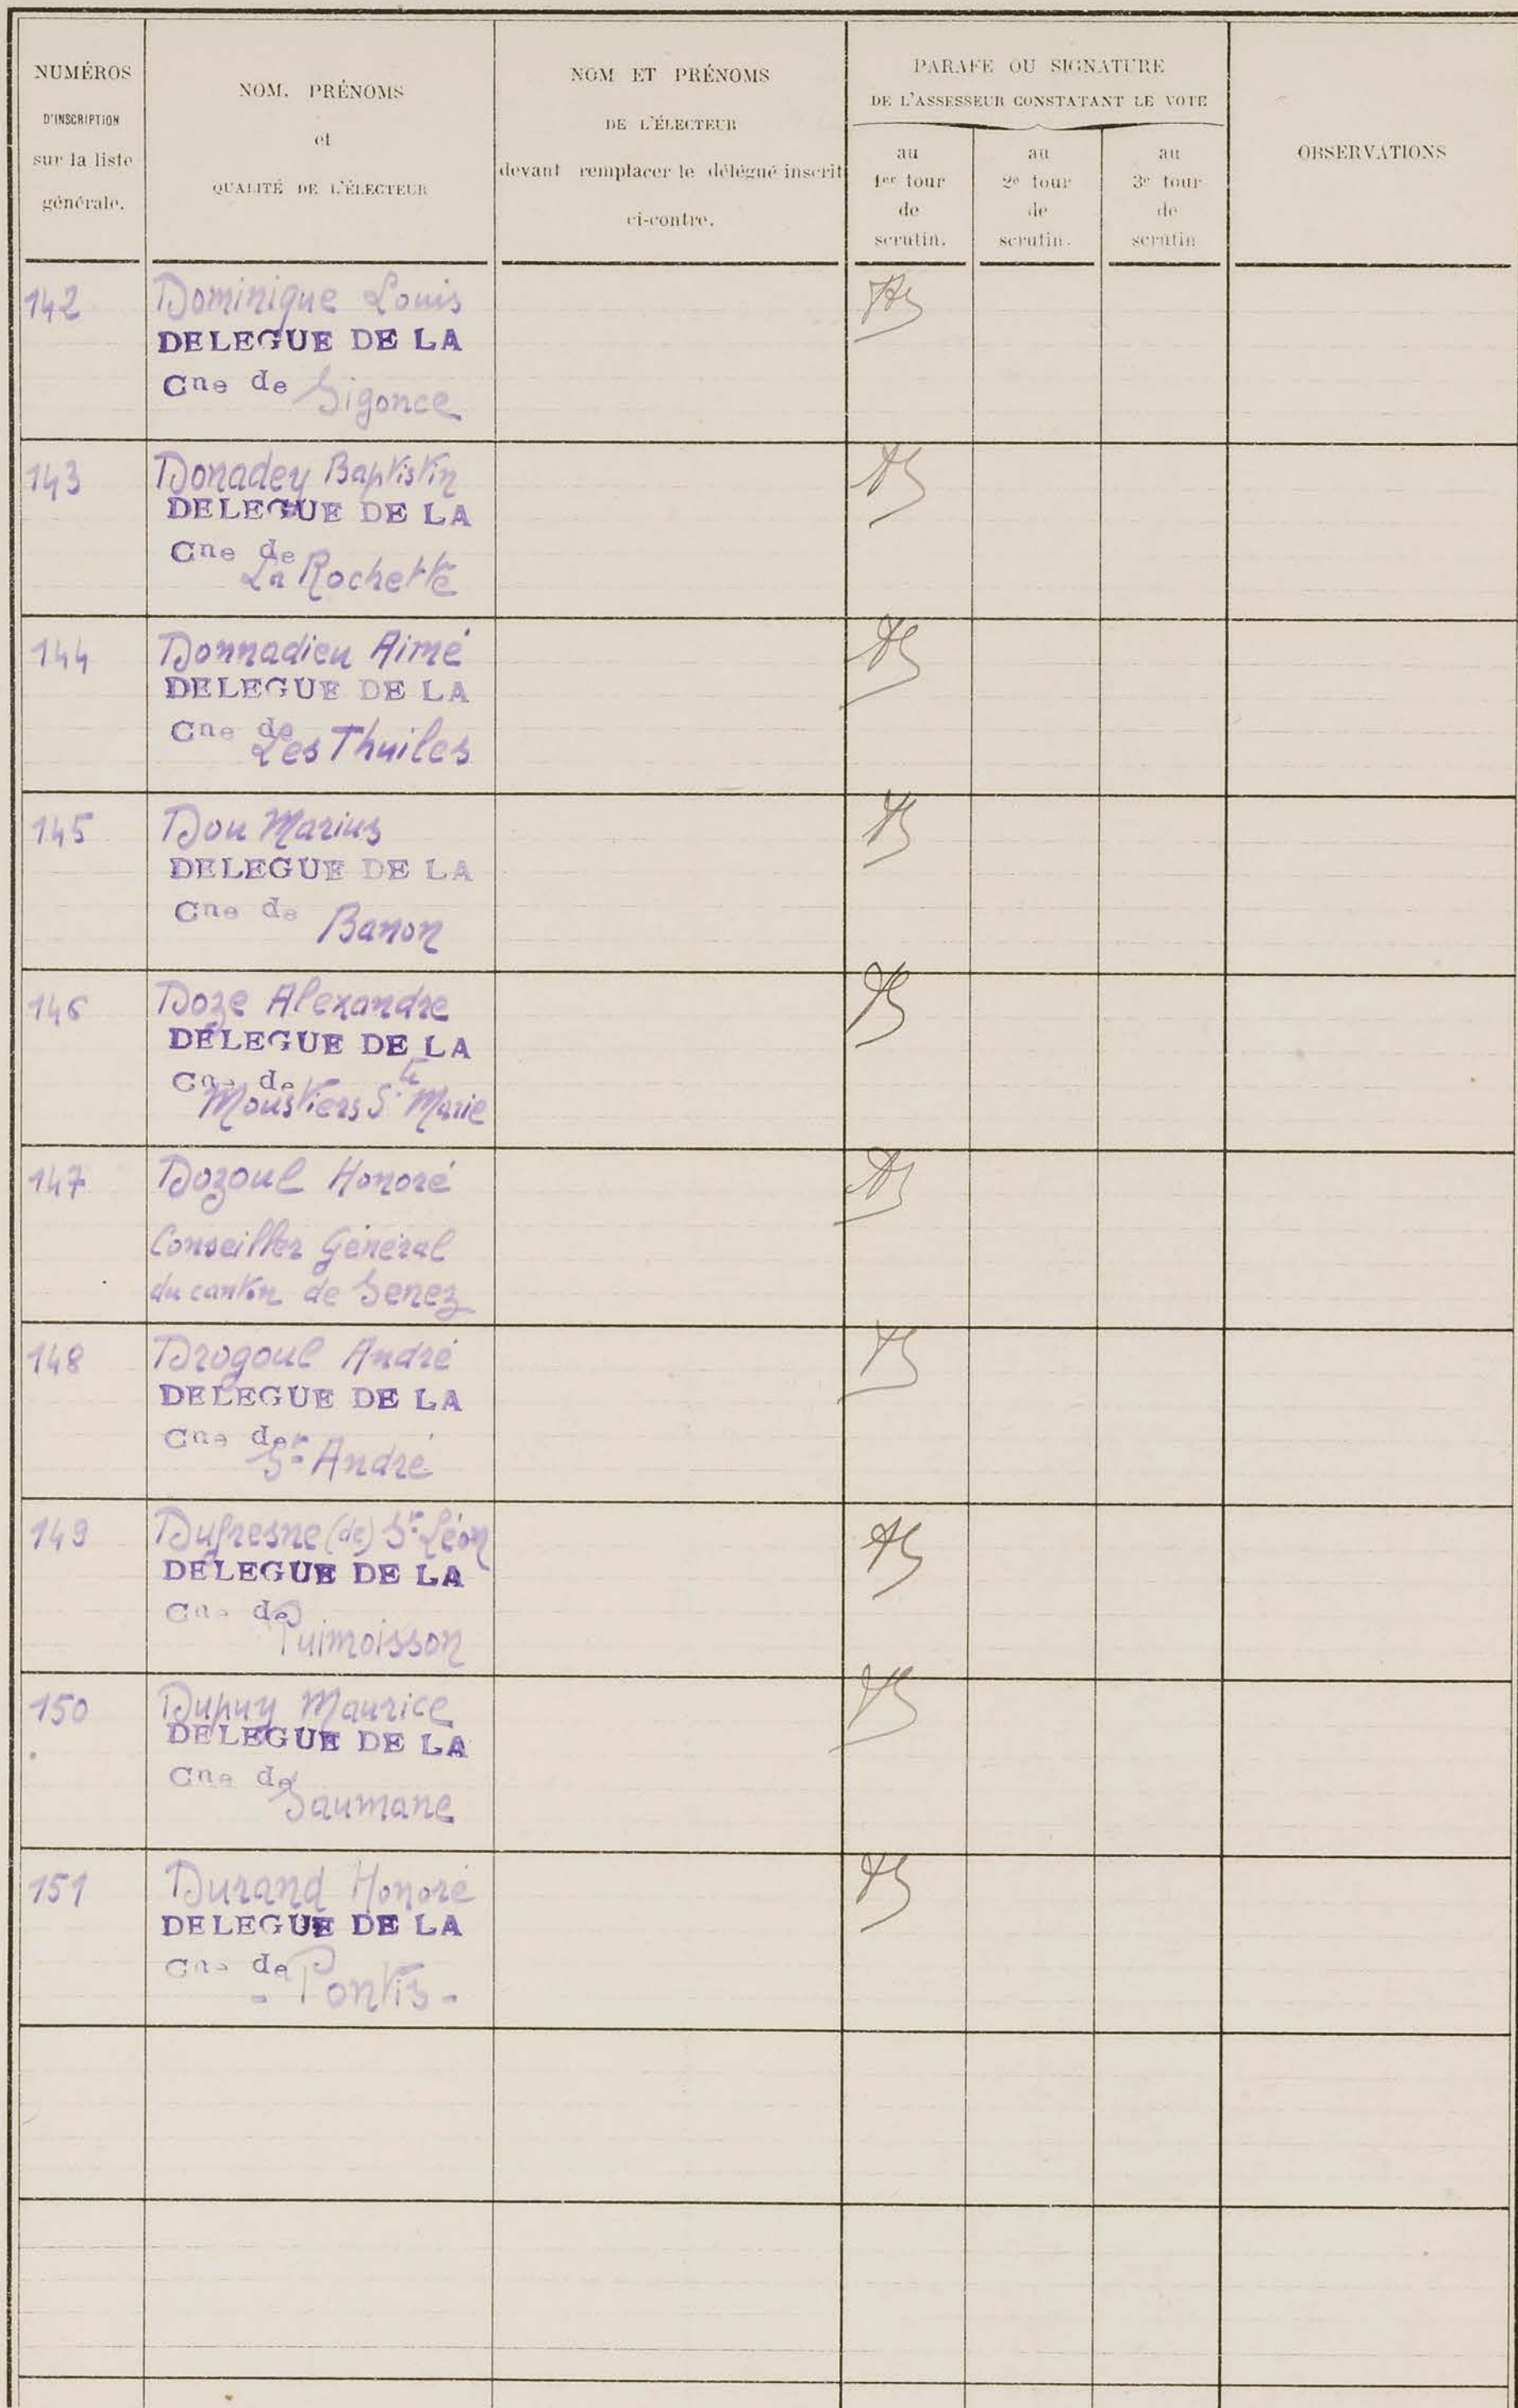 NUMÉROS
D'INSCRIPTION
sur la liste
générale.
NOM, PRÉNOMS
et
QUALITÉ DE L'ÉLECTEUR
NOM ET PRÉNOMS
DE L'ÉLECTEUR
devant remplacer le délégué inscrit
ci-contre.
PARAFE OU SIGNATURE
DE L'ASSESSEUR CONSTATANT LE VOTE
au
1er tour
de
scrutin.
au
2e tour
de
scrutin.
au
3e tour
de
scrutin
OBSERVATIONS
142
Dominique Louis
DELEGUE DE LA
Cne de Sigonce
143
Donadey Baptistin
DELEGUE DE LA
Cne de
La Rochette
144
Donnadieu Aimé
DELEGUE DE LA
Cne de
Les Thuiles
145
Dou Marius
DELEGUE DE LA
Cne de Banon
146
Doze Alexandre
DELEGUE DE LA
Cne de
Moustiers Ste Marie
147
Dozoul Honoré
Conseiller Général
du canton de Senez
148
Drogoul André
DELEGUE DE LA
Cne de
St André
149
Dufresne (de) St Léon
DELEGUE DE LA
Cne de
Puimoisson
150
Dupuy Maurice
DELEGUE DE LA
Cne de
Saumane
151
Durand Honoré
DELEGUE DE LA
Cne de
- Pontis -